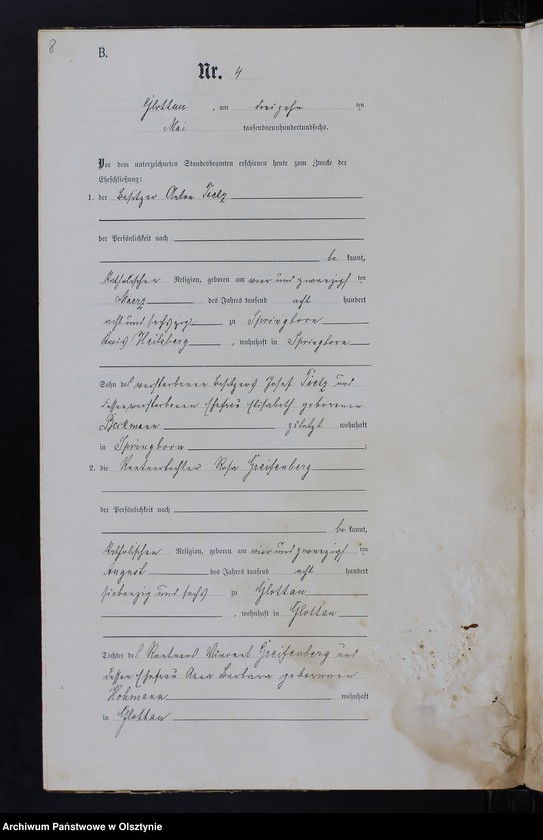 8
B.
Nr. 4
Glottau, am dreizehn ten
Mai tausendneunhundertundsechs.
Vor dem unterzeichneten Standesbeamten erschienen heute zum Zwecke der
Eheschließung:
1. der Besitzer Anton Tietz
der Persönlichkeit nach
be kannt,
katholischer Religion, geboren am vier und zwanzigsten
Maerz des Jahres tausend acht hundert
acht und sechszig zu Springborn
Kreis Heilsberg, wohnhaft in Springborn
Sohn des verstorbenen Besitzers Josef Tietz und
dessen verstorbenen Ehefrau Elisabeth geborenen
Beckmann zuletzt wohnhaft
in Springborn;
2. die Rentnertochter Rosa Greifenberg
der Persönlichkeit nach
be kannt,
katholischen Religion, geboren am vier und zwanzigsten
August des Jahres tausend acht hundert
siebenzig und sechs zu Glottau
, wohnhaft in Glottau
Tochter des Rentners Vincent Greifenberg und
dessen Ehefrau Anna Barbara geborenen
Hohmann wohnhaft
in Glottau
Archiwum Państwowe w Olsztynie